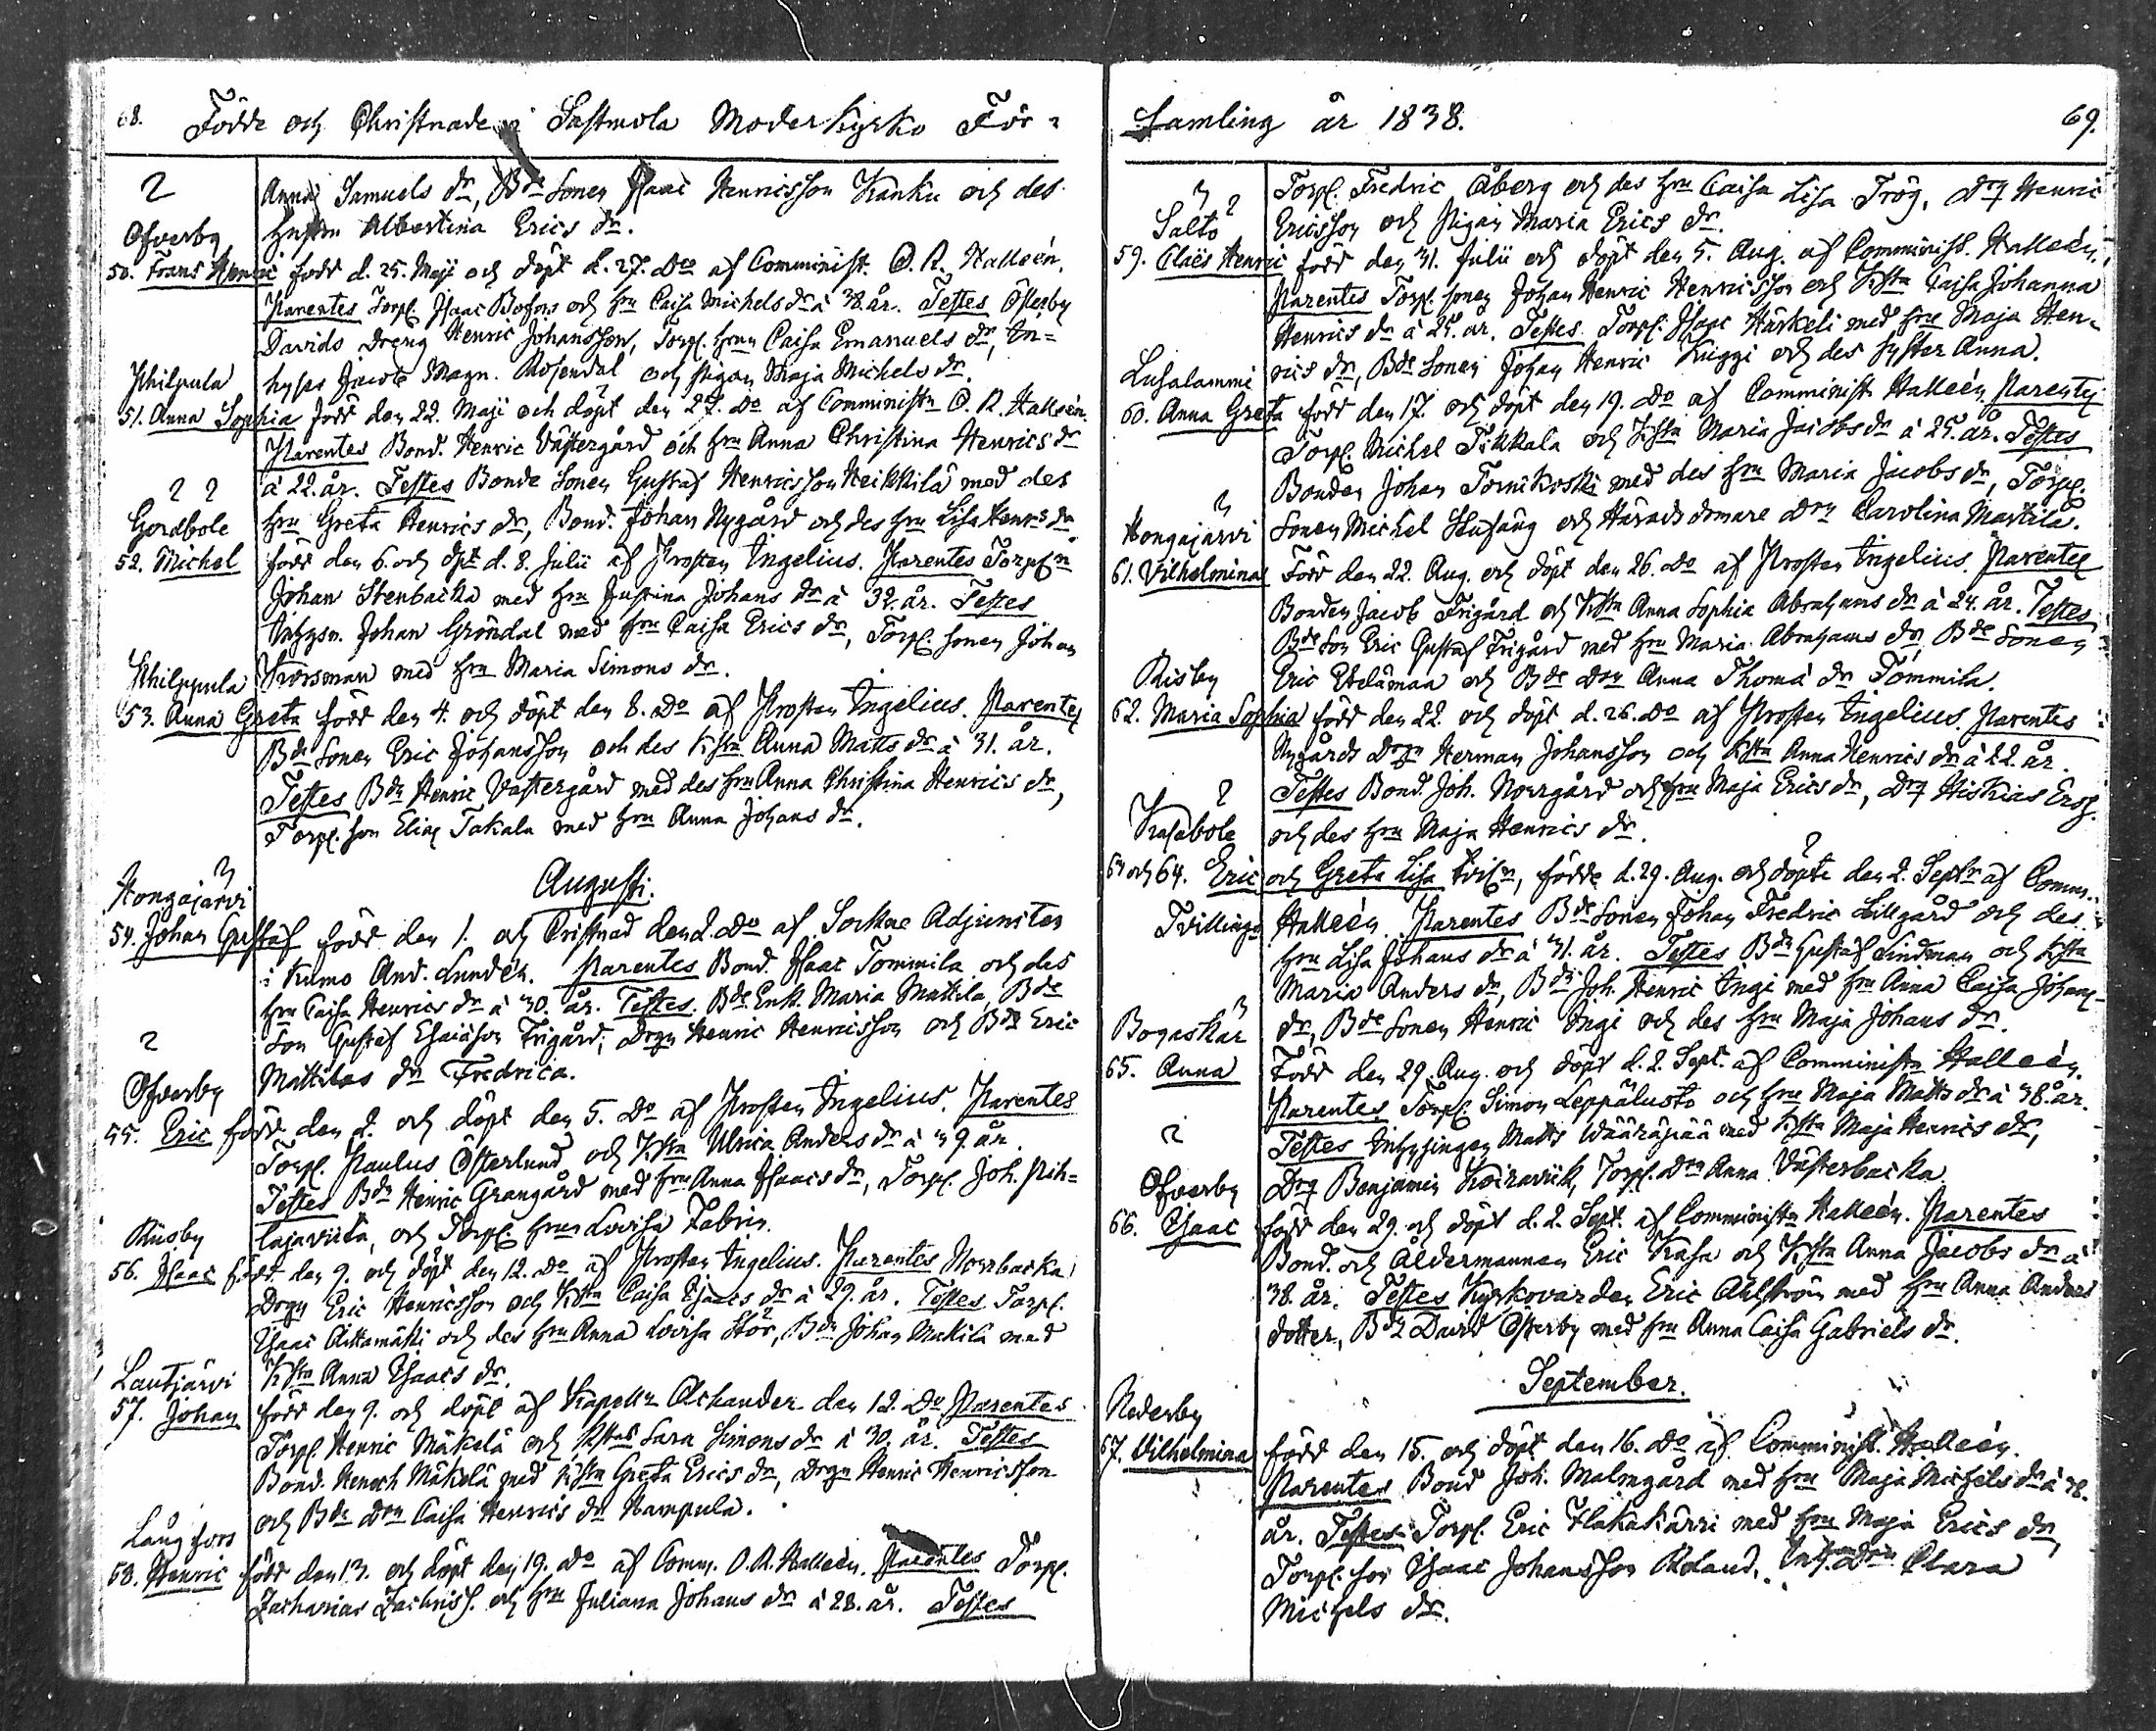 68. Födde och Christnade i Sastmola Moderkyrko För=
2 Anna Samuels dr, Bde Sonen Isaac Henricsson Kanku och des
Ofverby hustru Albertina Erics dr.
50. Frans Henric född d. 25. Maji och döpt d. 27. do af Comminist. O. R. Halleén.
Parentes Torp. Isaac Bofors och hru Caisa Michels dr à 38. år. Testes Österby
Davids dreng Henric Johansson, Torp. hrun Caisa Emanuels dr, In=
Philpula hyses Jacob Magn. Rosendal och pigan Maja Michels dr.
51. Anna Sophia född den 22. Maji och döpt den 27. do af Comministr O. R. Halleén.
Parentes Bond. Henric Västergård och hru Anna Christina Henrics dr
à 22. år. Testes Bonde Sonen Gustaf Henricsson Heikkilä med des
2 2
Gerdbole hru Greta Henrics dr, Bond. Johan Nygård och des hru Lisa Henrs dr
52. Michel född den 6. och döpt d. 8. Julii af Prosten Ingelius. Parentes Torpn
Johan Stenbacka med hru Justina Johans dr à 32. år. Testes
Inhysn. Johan Gröndal med hru Caisa Erics dr, Torp. sonen Johan
Philppula Korsman med hru Maria Simons dr.
53. Anna Greta född den 4. och döpt den 8. do af Prosten Ingelius. Parentes
Bde Sonen Eric Johansson och des hstru Anna Matts dr à 31. år.
Testes Bdn Henric Västergård med des hru Anna Christina Henrics dr,
Torp. son Elias Takala med hru Anna Johans dr.
Hongajärvi Augusti.
54. Johan Gustaf född den 1. och Cristnad den 2. do af Sockne Adjuncten
i Kumo And. Lundén. Parentes Bond. Isaac Tommila och des
hru Caisa Henrics dr à 30. år. Testes. Bde Enk. Maria Mattila, Bde
2 Son Gustaf Esaiasson Frigård, Drgn Henric Henricsson och Bdn Eric
Ofverby Mattilas dr Fredrica.
55. Eric född den 2. och döpt den 5. do af Prosten Ingelius. Parentes
Torp. Paulus Österlund och hstru Ulrica Anders dr à 39. år.
Testes Bdn Henric Grangård med hru Anna Isaacs dr, Torp. Joh. Pih=
Riisby lajaviita, och Torp. hrun Lovisa Fabrin.
56. Isaac född den 9. och döpt den 12. do af Prosten Ingelius. Parentes Norrbacka
Drgn Eric Henricsson och hstru Caisa Isaacs dr à 29. år. Testes Torp.
Isaac Aittamäki och des hru Anna Lovisa Stör, Bdn Johan Makila med
Lautjärvi hstru Anna Isaacs dr.
57. Johan född den 9. och döpt af Kapelln Achander den 12. do Parentes
Torp. Henric Mäkelä och hstru Sara Simons dr à 30. år. Testes
Bond. Henoch Mäkelä med hstru Greta Erics dr, Drgn Henric Henricsson
och Bde drn Caisa Henrics dr Rampula.
Långfors
58. Henric född den 13. och döpt den 19. do af Comm. O. R. Halleén. Parentes Torp.
Zacharias Zachriss. och hru Juliana Johans dr à 28. år. Testes
Samling år 1838. 69.
Torp. Fredric Åberg och des hru Caisa Lisa Trög, Drg Henric
Salto Ericsson och pigan Maria Erics dr.
59. Claës Henric född den 31. Julii och döpt den 5. Aug. af Comminist. Halleén.
Parentes Torp. sonen Johan Henric Henricsson och hstru Caisa Johanna
Henrics dr à 25. år. Testes Torp. Isaac Härkeli med hru Maja Hen=
rics dr, Bde Sonen Johan Henric Kuggi och des syster Anna.
Lusalammi
60. Anna Greta född den 17. och döpt den 19. do af Comministr Halleén Parentes
Torp. Michel Tikkala och hstru Maria Jacobs dr à 25. år. Testes
Bonden Johan Tornikoski med des hru Maria Jacobs dr, Torp.
Hongajärvi Sonen Michel och Härads domare drn Carolina Martila.
61. Vilhelmina Född den 22. Aug. och döpt den 26. do af Prosten Ingelius. Parentes
Bonden Jacob Frigård och hstru Anna Sophia Abrahams dr à 24. år. Testes
Bde Son Eric Gustaf Frigård med hru Maria Abrahams dr, Bde Sonen
Risby Eric Etelämaa och Bde drn Anna Thoma dr Tommila.
62. Maria Sophia född den 22. och döpt d. 26. do af Prosten Ingelius. Parentes
Nygårds Drgn Herman Johansson och hstru Anna Henrics dr à 22. år.
2 Testes Bond. Joh. Norrgård och hru Maja Erics dr, Drg Hiskias Ers.
Kasabole och des hru Maja Henrics dr.
63 och 64. Eric och Greta Lisa , födde d. 29. Aug. och döpte den 2. Septr af Comm.
Tvillingr Halleén. Parentes Bde Sonen Johan Fredric Lillgård och des
hru Lisa Johans dr à 31. år. Testes Bdn Gustaf Lindman och hstru
Maria Anders dr, Bdn Joh. Henric Ingi med hru Anna Caisa Johans
Bogaskär dr, Bde Sonen Henric Ingi och des hru Maja Johans dr.
65. Anna Född den 29. Aug. och döpt d. 2. Sept. af Comministr Halleén.
Parentes Torp. Simon Leppälusto och hru Maja Matts dr à 38. år.
2 Testes Inhysingen Matts Wääräpää med hstru Maja Henrics dr,
Ofverby Drg Benjamin Koiraviik, Torp. drn Anna Västerbacka
66. Esaac född den 29. och döpt d. 2. Sept. af Comministr Halleén. Parentes
Bond. och Åldermannen Eric Kasa och hstru Anna Jacobs dr à
38. år. Testes Kyrkovärden Eric Ahlström med hru Anna Anders
dotter, Bdn David Österby med hru Anna Caisa Gabriels dr.
September.
Nederby
67. Vilhelmina född den 15. och döpt den 16. do af Comminist. Halleén.
Parentes Bond Joh. Malmgård med hru Maja Michels dr à 38.
år. Testes Torp. Eric Flakakärri med hru Maja Erics dr,
Torp. son Isaac Johansson Roland, Inh. drn Clara
Michels dr.